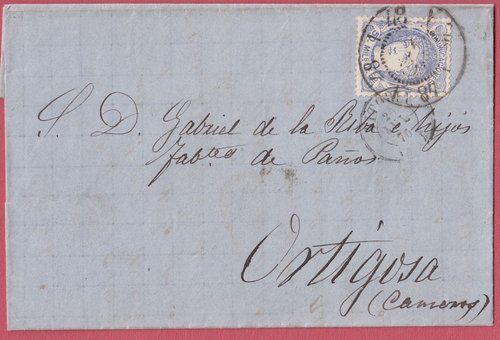 S. D. Gabriel de la Riba e hijos
fab.tes de Paños
Ortigosa
(Cameros)
48